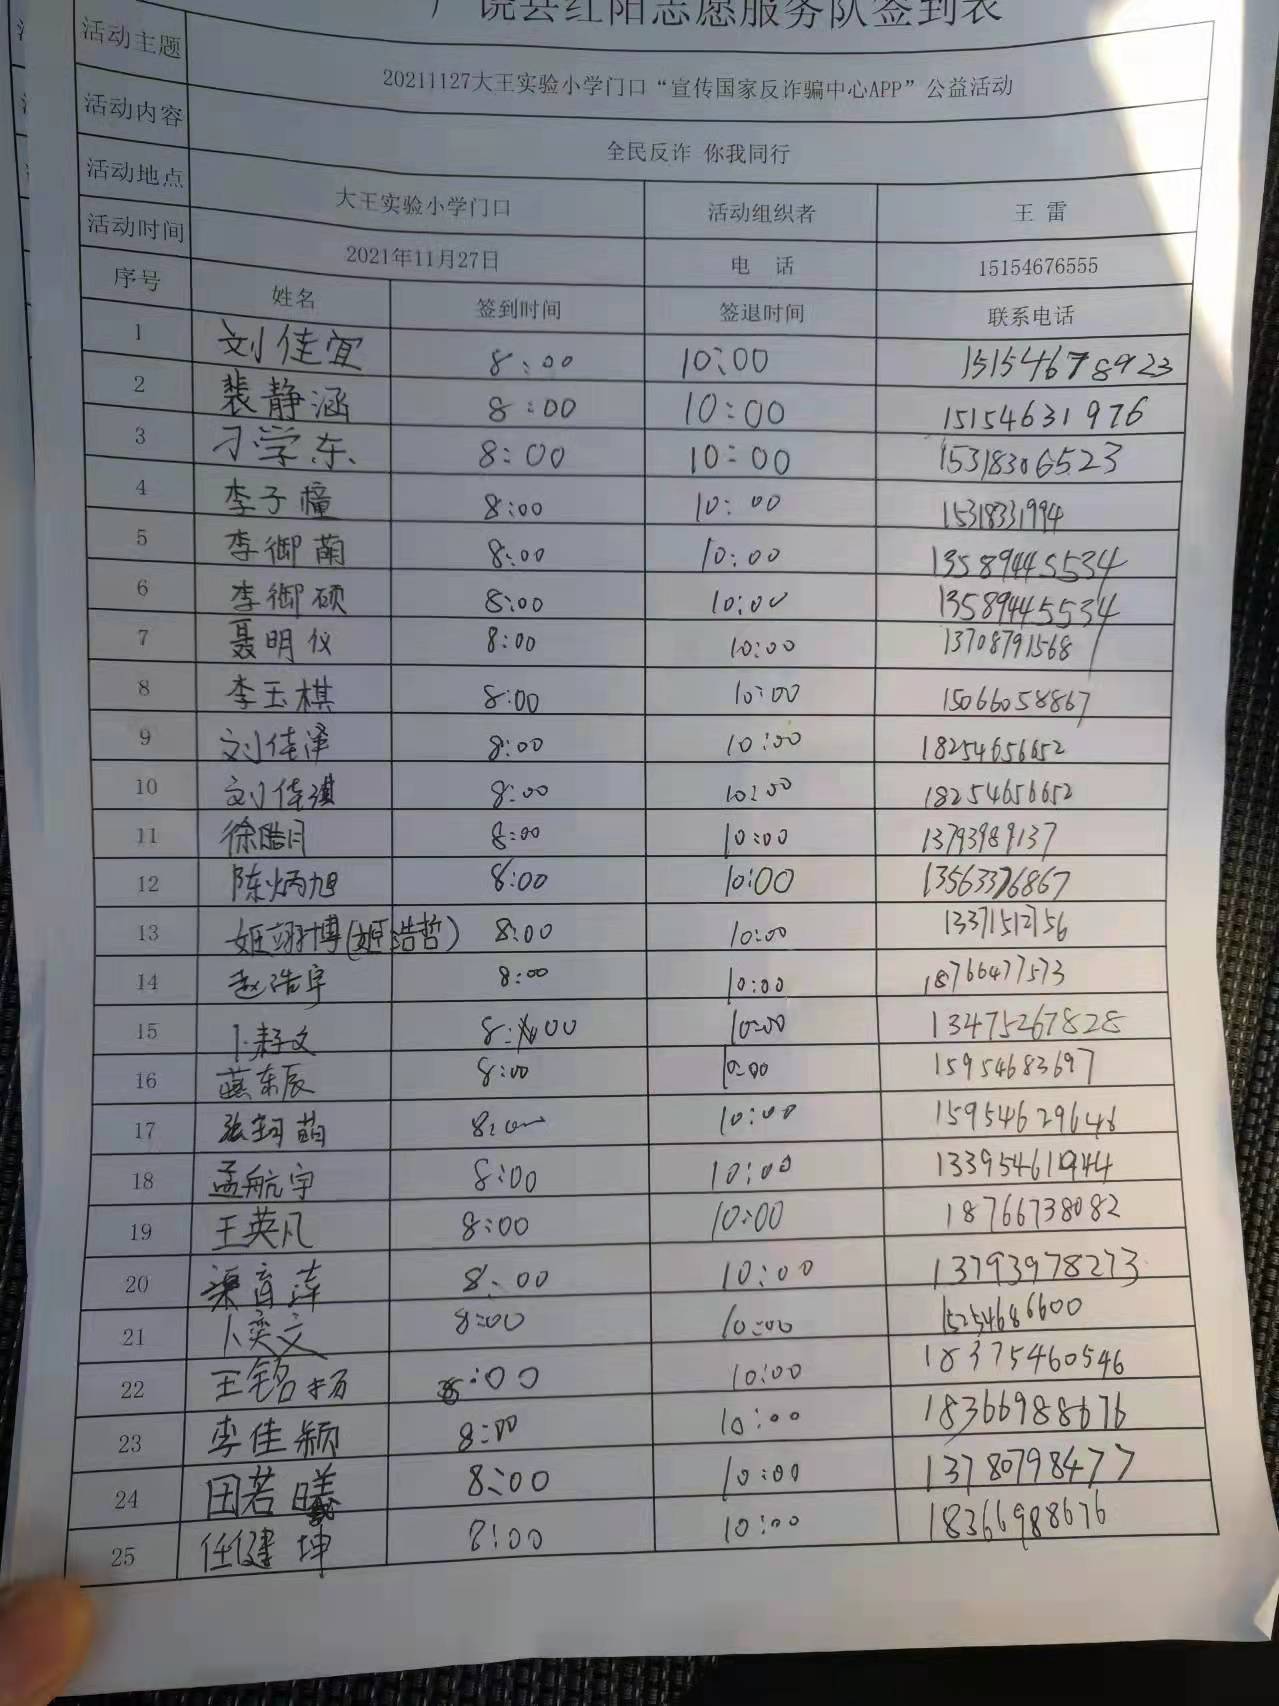 广饶县红阳志愿服务队签到表
活动主题 20211127大王实验小学门口“宣传国家反诈骗中心APP”公益活动
活动内容 全民反诈 你我同行
活动地点 大王实验小学门口 活动组织者 王 雷
活动时间 2021年11月27日 电 话 15154676555
序号 姓名 签到时间 签退时间 联系电话
1 刘佳宜 8:00 10:00 15154678923
2 裴静涵 8:00 10:00 15154631976
3 刁学东 8:00 10:00 15318306523
4 李子橦 8:00 10:00 15318331994
5 李御萌 8:00 10:00 13589445534
6 李御硕 8:00 10:00 13589445534
7 聂明仪 8:00 10:00 13708791568
8 李玉棋 8:00 10:00 15066058867
9 刘佳泽 8:00 10:00 18254656652
10 刘佳琪 8:00 10:00 18254656652
11 徐皓月 8:00 10:00 13793989137
12 陈炳旭 8:00 10:00 13563376867
13 姬翊博(姬浩哲) 8:00 10:00 13371512756
14 赵浩宇 8:00 10:00 18766477573
15 卜耔文 8:00 10:00 13475267828
16 燕东辰 8:00 10:00 15954683697
17 张翔萌 8:00 10:00 15954629646
18 孟航宇 8:00 10:00 13395461944
19 王英凡 8:00 10:00 18766738082
20 渠育莲 8:00 10:00 13793978273
21 卜奕文 8:00 10:00 15254686600
22 王铭扬 8:00 10:00 18375460546
23 李佳颖 8:00 10:00 18366988676
24 田若曦 8:00 10:00 13780798477
25 任健坤 8:00 10:00 18366988676